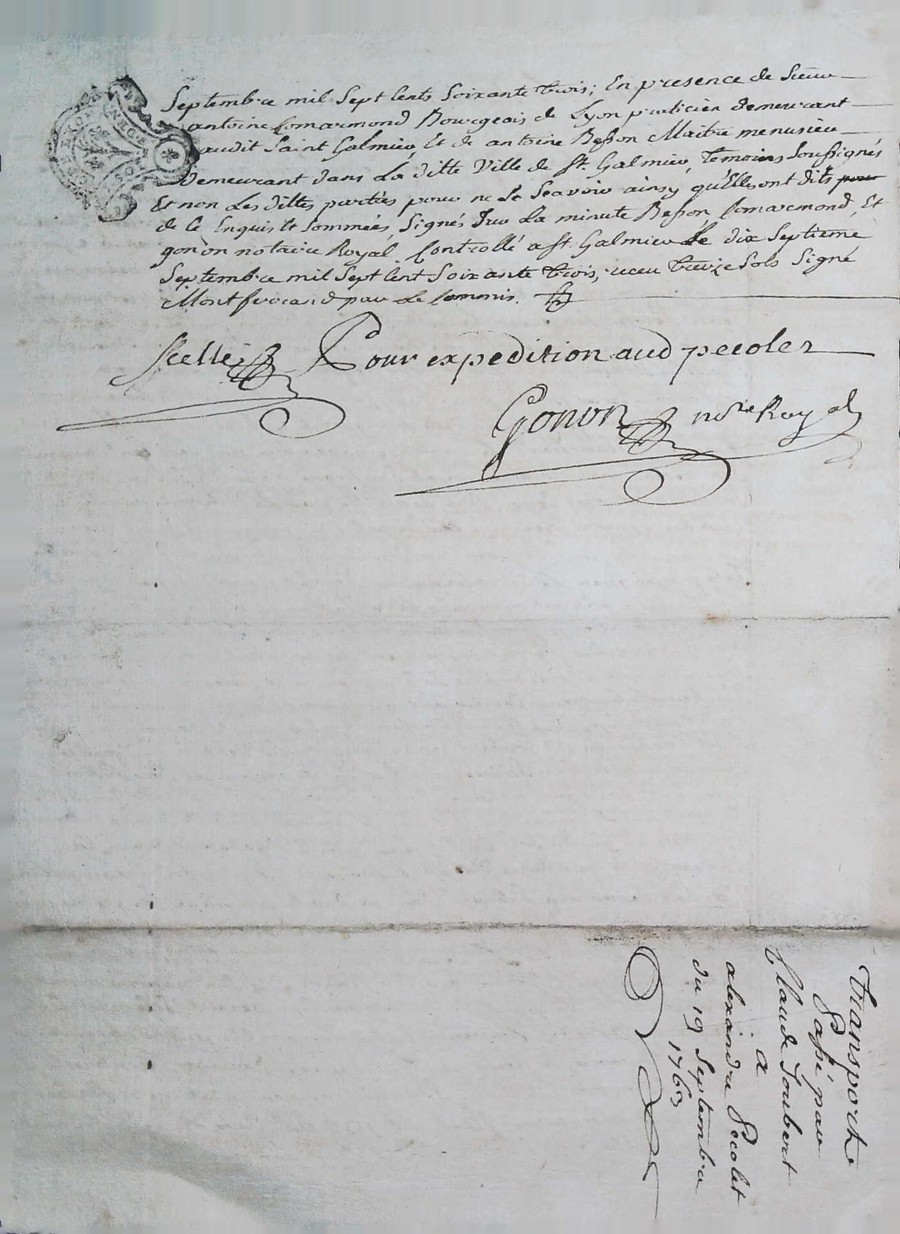 Septembre mil Sept Cents Soixante trois; En presence de Sieur
antoine Comarmond Bourgeois de Lyon praticien demeurant
audit Saint Galmier, Et de antoine Besson Maitre menusier
Demeurant dans La ditte Ville de St. Galmier, temoins Soussignés
Et non Les dittes parties pour ne Le Scavoir ainsy qu'Elles ont dits
de ce Enquis Et Sommées, Signés Sur La minute Besson, Comarmond, Et
gonon notaire Royal. Controllé a St. Galmier Le dix Septieme
Septembre mil Sept Cent Soixante trois, receu treize Sols Signé
Montferrand par Le Commis.
Scellé Pour expedition aud pecolet
Gonon nore Royal
Transporte
Passé par
Claude Joubert
a
alexandre Pecolet
du 19 Septembre
1763